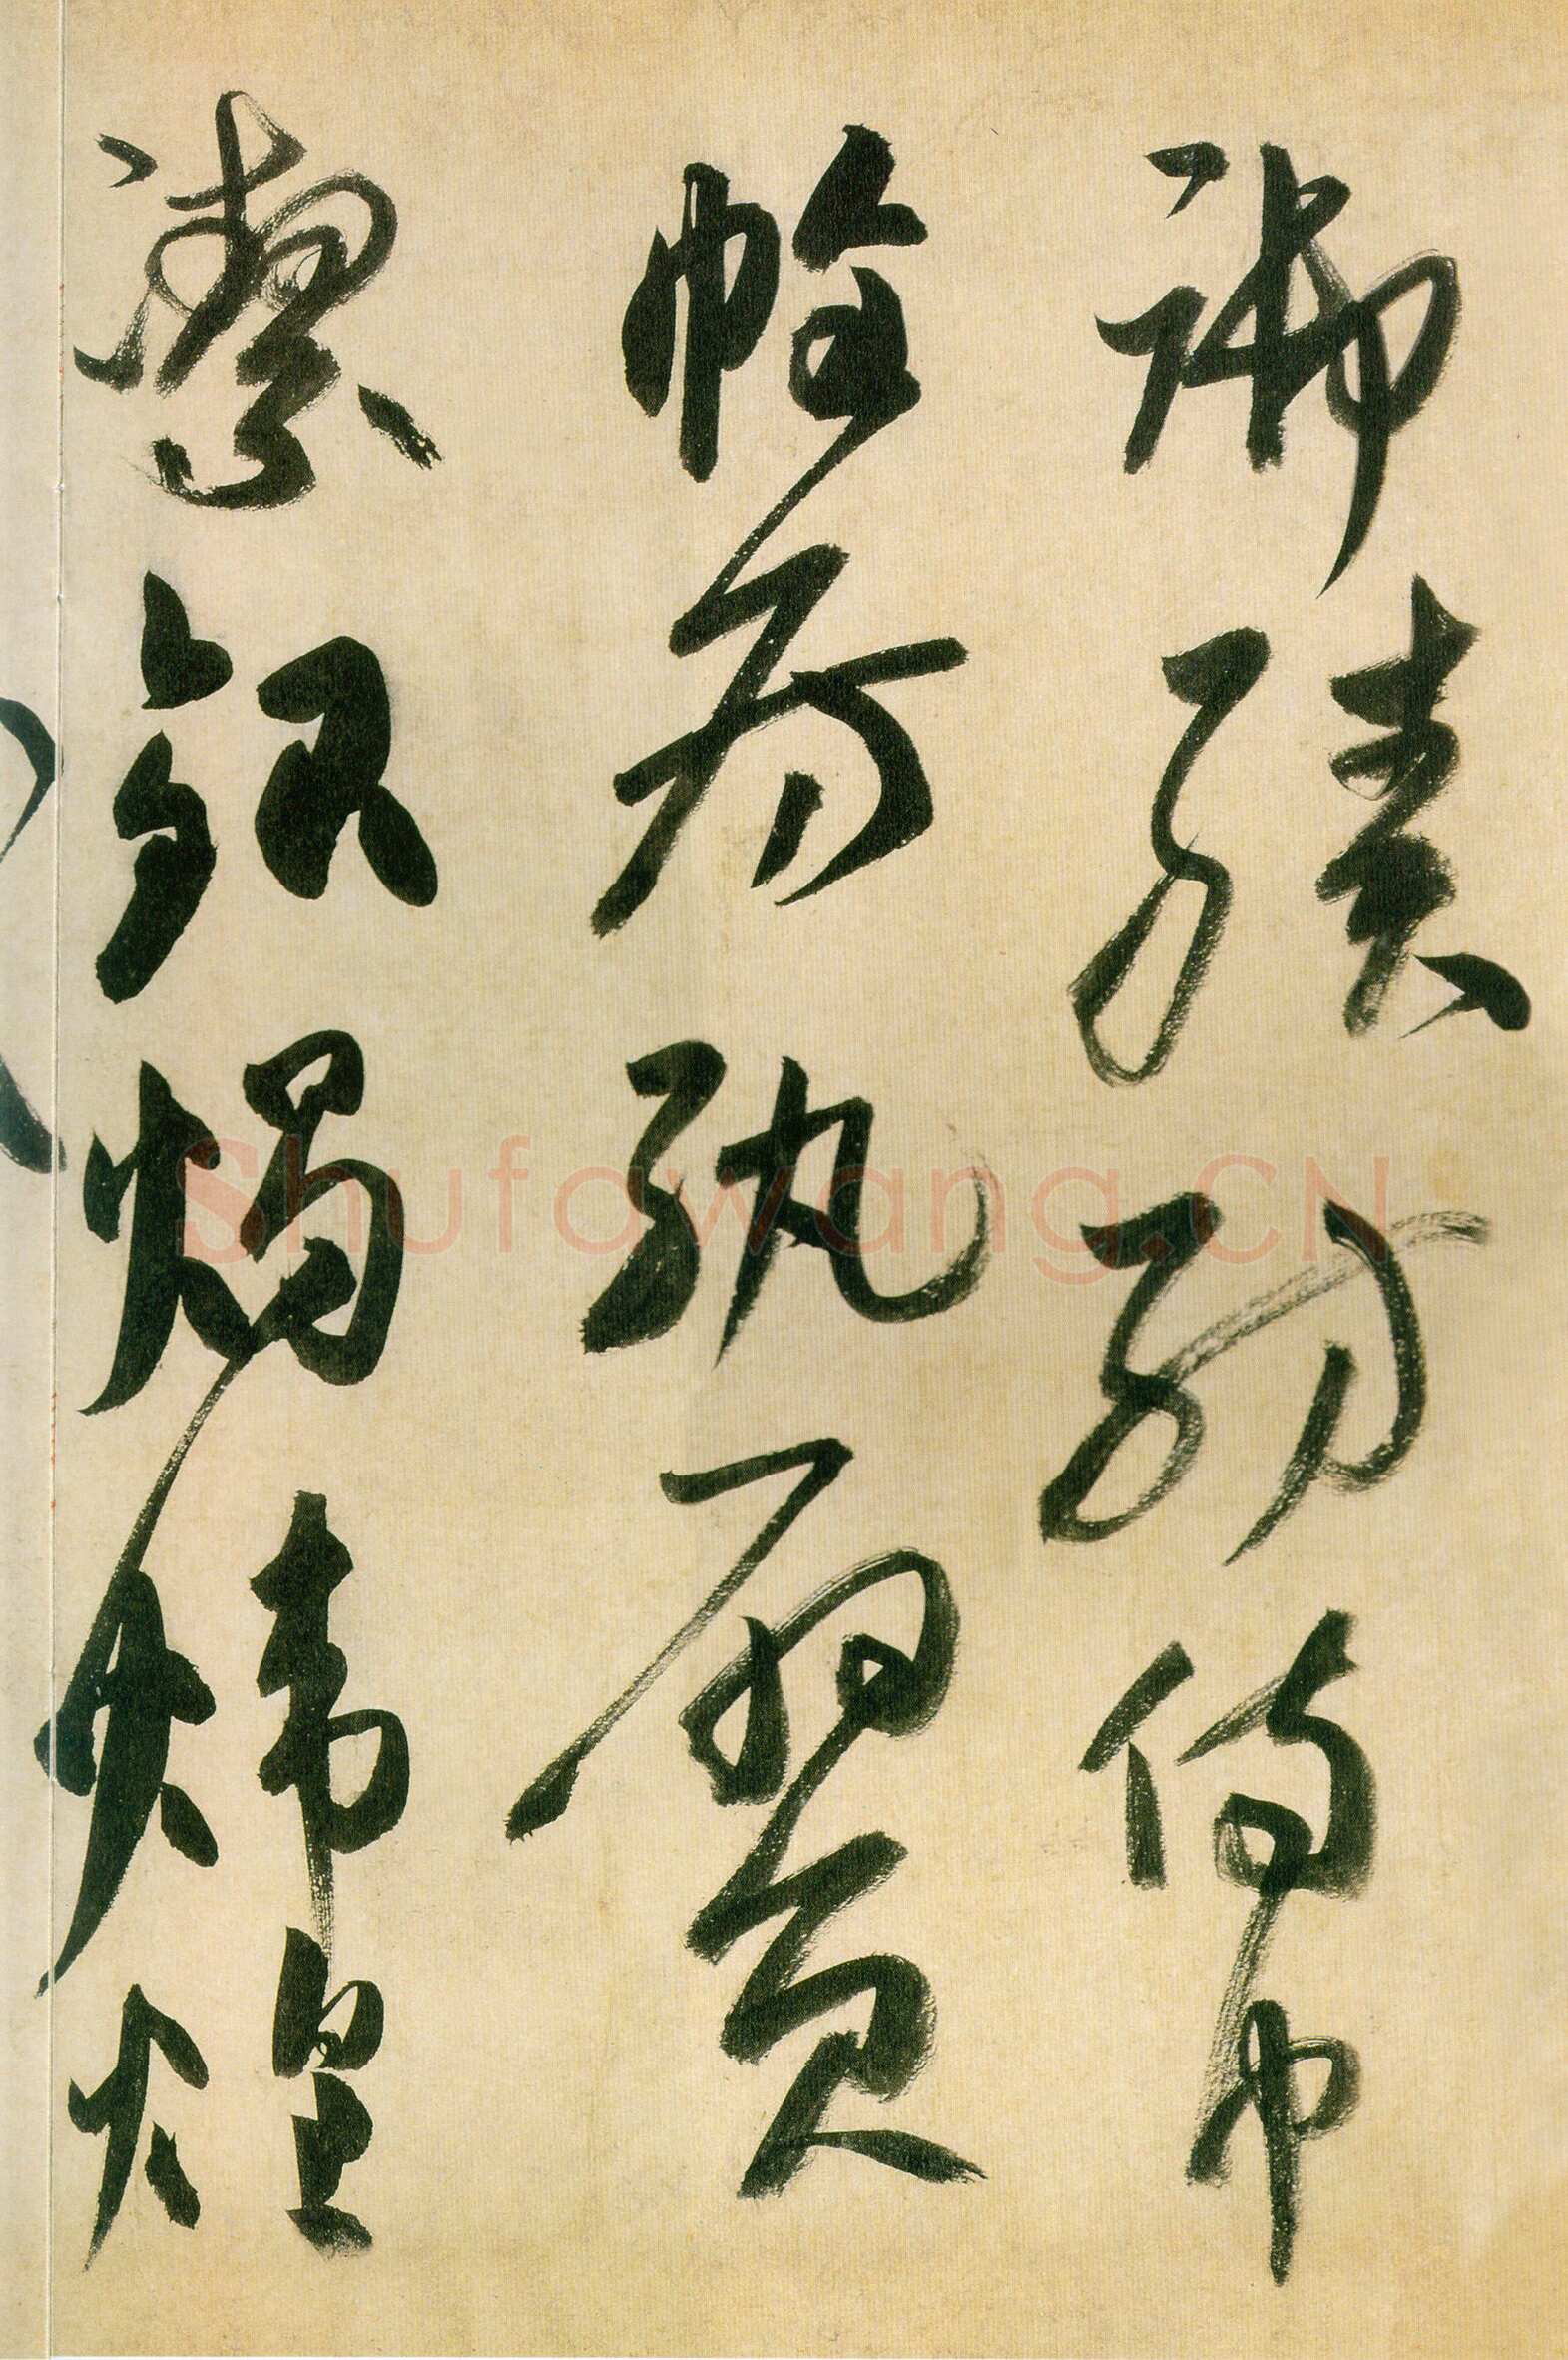 御績紡侍巾
帷房紈扇員
潔銀燭煒煌
Shufawang.CN